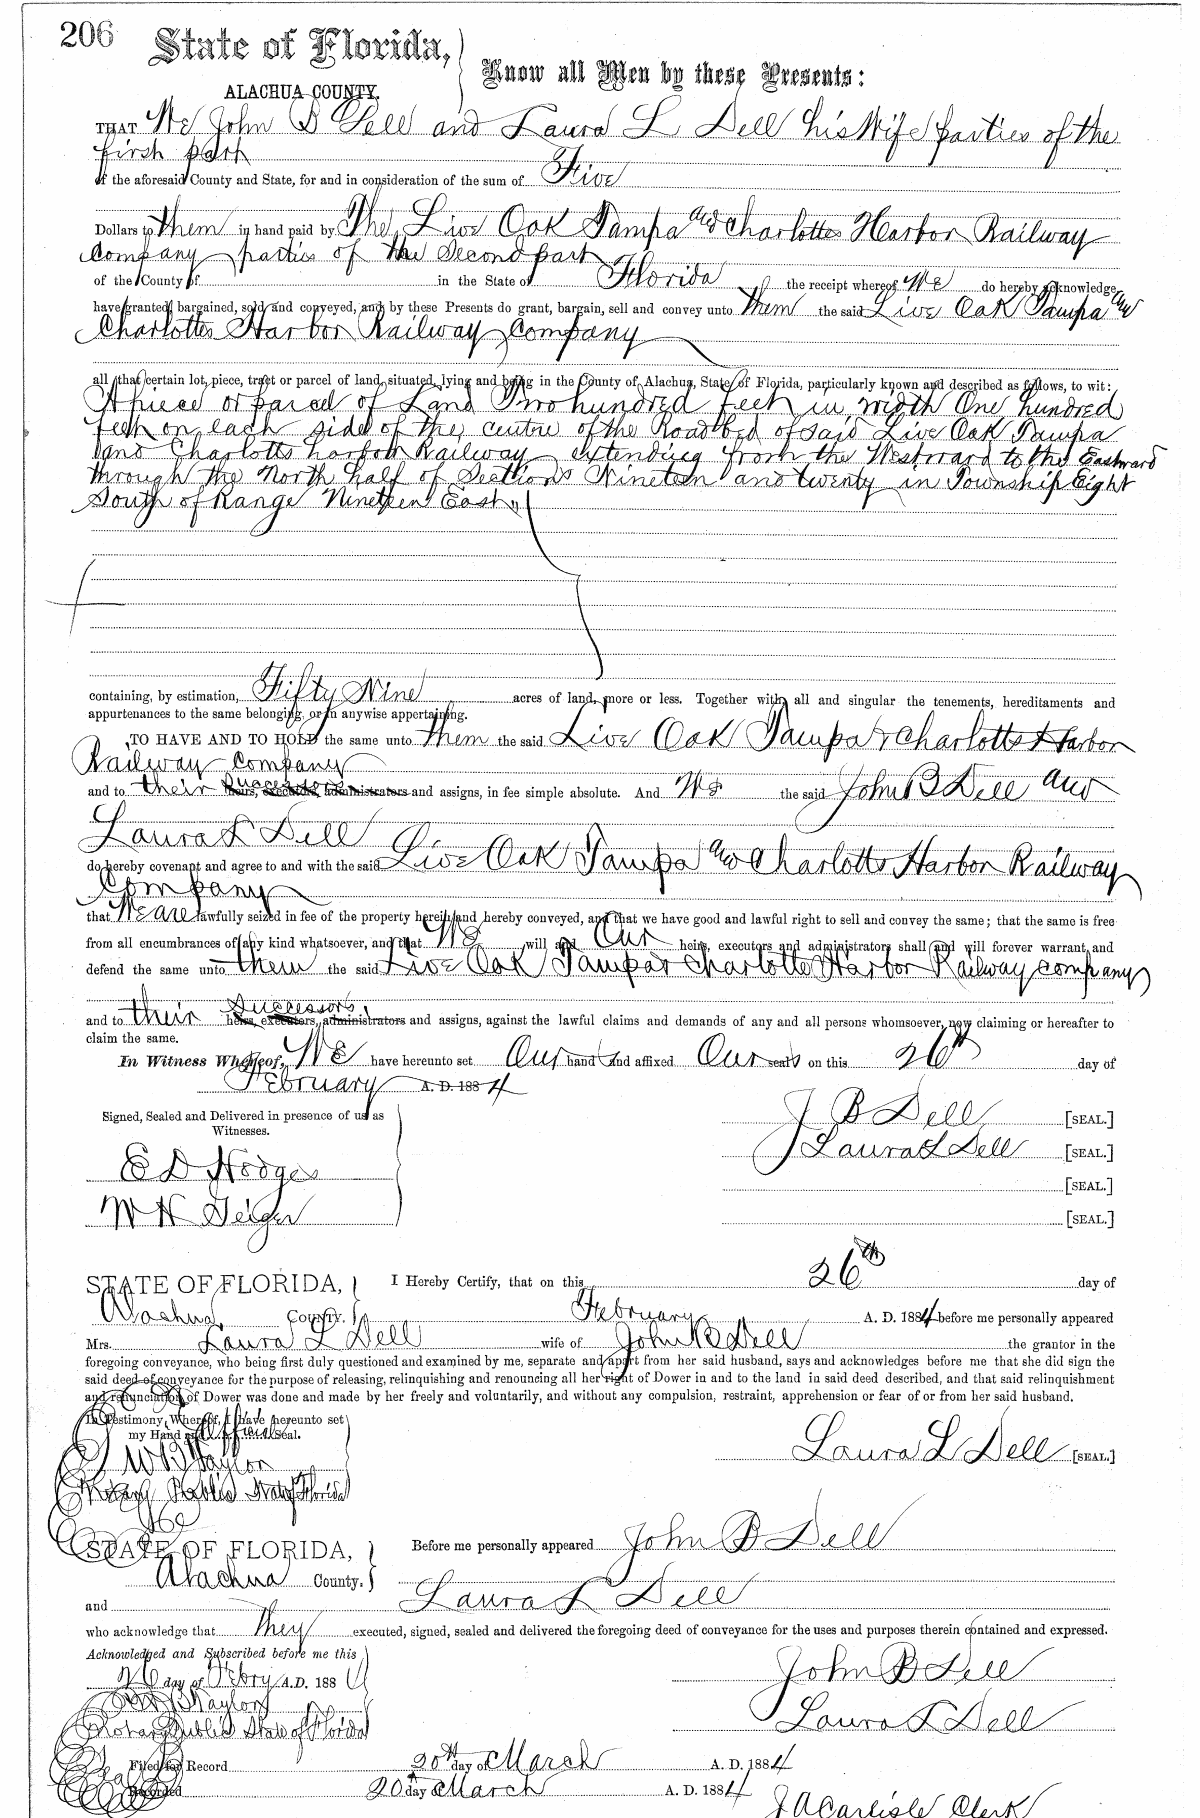 206
State of Florida,
Know all Men by these Presents:
ALACHUA COUNTY.
THAT We John B Dell and Laura L Dell his Wife parties of the
first part
of the aforesaid County and State, for and in consideration of the sum of Five
Dollars to them in hand paid by The Live Oak Tampa and Charlotte Harbor Railway
Company parties of the Second part
of the County of in the State of Florida the receipt whereof We do hereby acknowledge,
have granted, bargained, sold and conveyed, and by these Presents do grant, bargain, sell and convey unto them the said Live Oak Tampa and
Charlotte Harbor Railway Company
all that certain lot, piece, tract or parcel of land, situated, lying and being in the County of Alachua, State of Florida, particularly known and described as follows, to wit:
A piece or parcel of Land Two hundred feet in width One hundred
feet on each side of the centre of the Road bed of said Live Oak Tampa
and Charlotts harbor Railway extending from the Westward to the Eastward
through the North half of Sections Nineteen and twenty in Township Eight
South of Range Nineteen East
containing, by estimation, Fifty Nine acres of land, more or less. Together with all and singular the tenements, hereditaments and
appurtenances to the same belonging, or in anywise appertaining.
TO HAVE AND TO HOLD the same unto them the said Live Oak Tampa & Charlotts Harbor
Railway Company
and to their Successors heirs, executors, administrators and assigns, in fee simple absolute. And We the said John B Dell and
Laura L Dell
do hereby covenant and agree to and with the said Live Oak Tampa and Charlotts Harbor Railway
Company
that We are lawfully seized in fee of the property herein and hereby conveyed, and that we have good and lawful right to sell and convey the same; that the same is free
from all encumbrances of any kind whatsoever, and that We will and Our heirs, executors and administrators shall and will forever warrant and
defend the same unto them the said Live Oak Tampa & Charlotte Harbor Railway company
and to their Successors heirs, executors, administrators and assigns, against the lawful claims and demands of any and all persons whomsoever, now claiming or hereafter to
claim the same.
In Witness Whereof, We have hereunto set Our hands and affixed Our seals on this 26th day of
February A. D. 1884
Signed, Sealed and Delivered in presence of us as
Witnesses.
J B Dell [SEAL.]
Laura L Dell [SEAL.]
E D Hodges
[SEAL.]
W H Geiger
[SEAL.]
STATE OF FLORIDA, I Hereby Certify, that on this 26th day of
Alachua County. February A. D. 1884 before me personally appeared
Mrs. Laura L Dell wife of John B Dell the grantor in the
foregoing conveyance, who being first duly questioned and examined by me, separate and apart from her said husband, says and acknowledges before me that she did sign the
said deed of conveyance for the purpose of releasing, relinquishing and renouncing all her right of Dower in and to the land in said deed described, and that said relinquishment
and renunciation of Dower was done and made by her freely and voluntarily, and without any compulsion, restraint, apprehension or fear of or from her said husband.
In Testimony Whereof, I have hereunto set
my Hand and Official Seal.
Laura L Dell [SEAL.]
W B Taylor
Notary Public State of Florida
STATE OF FLORIDA, Before me personally appeared John B Dell
Alachua County.
and Laura L Dell
who acknowledge that they executed, signed, sealed and delivered the foregoing deed of conveyance for the uses and purposes therein contained and expressed.
Acknowledged and Subscribed before me this
26 day of Febry A.D. 188
John B Dell
W B Taylor
Laura L Dell
Notary Public State of Florida
Filed for Record 20th day of March A. D. 1884
Recorded 20 day of March A. D. 1884
J A Carlisle Clerk